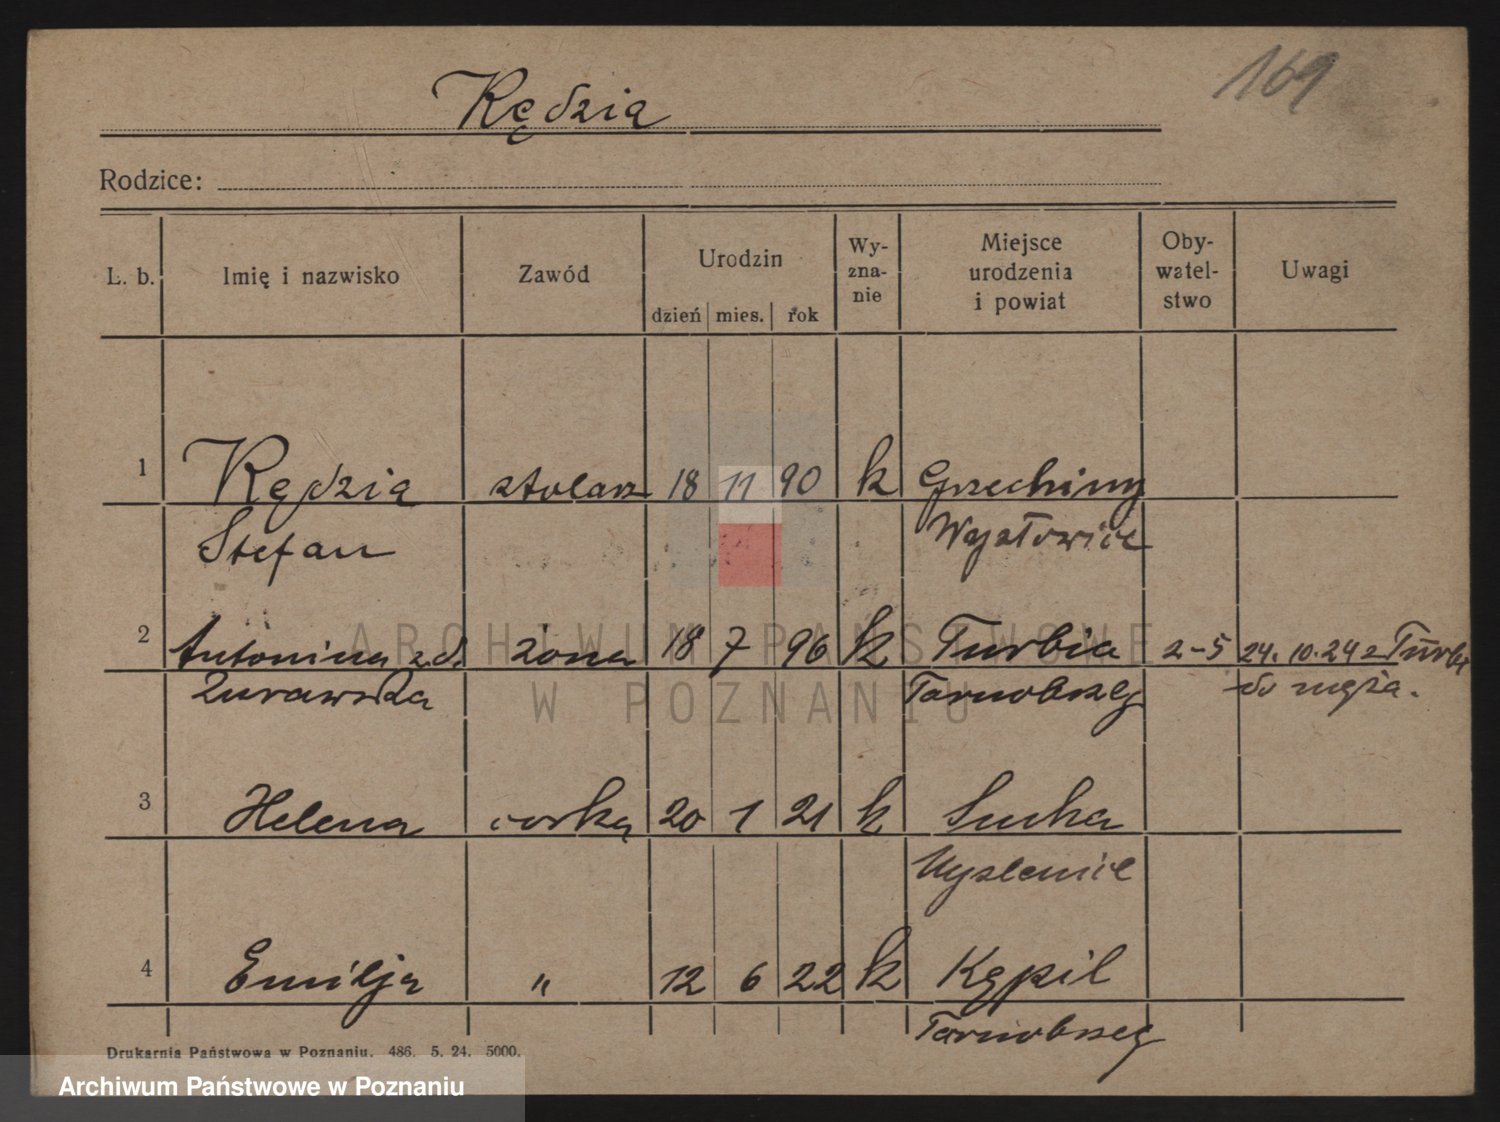 169
Kędzia
Rodzice:
L. b. Imię i nazwisko Zawód Urodzin dzień mies. rok Wy-zna-nie Miejsce urodzenia i powiat Oby-watel-stwo Uwagi
1 Kędzia stolarz 18 11 90 k Grzechiny
Stefan
2 Antonina z d. żona 18 7 96 k Turbia 2-5 24. 10. 24 z Turbi
Żurawska Tarnobrzeg do męża.
3 Helena córka 20 1 21 k Sucha
4 Emilja " 12 6 22 k
Tarnobrzeg
Drukarnia Państwowa w Poznaniu. 486. 5. 24. 5000.
ARCHIWUM PAŃSTWOWE
W POZNANIU
Archiwum Państwowe w Poznaniu